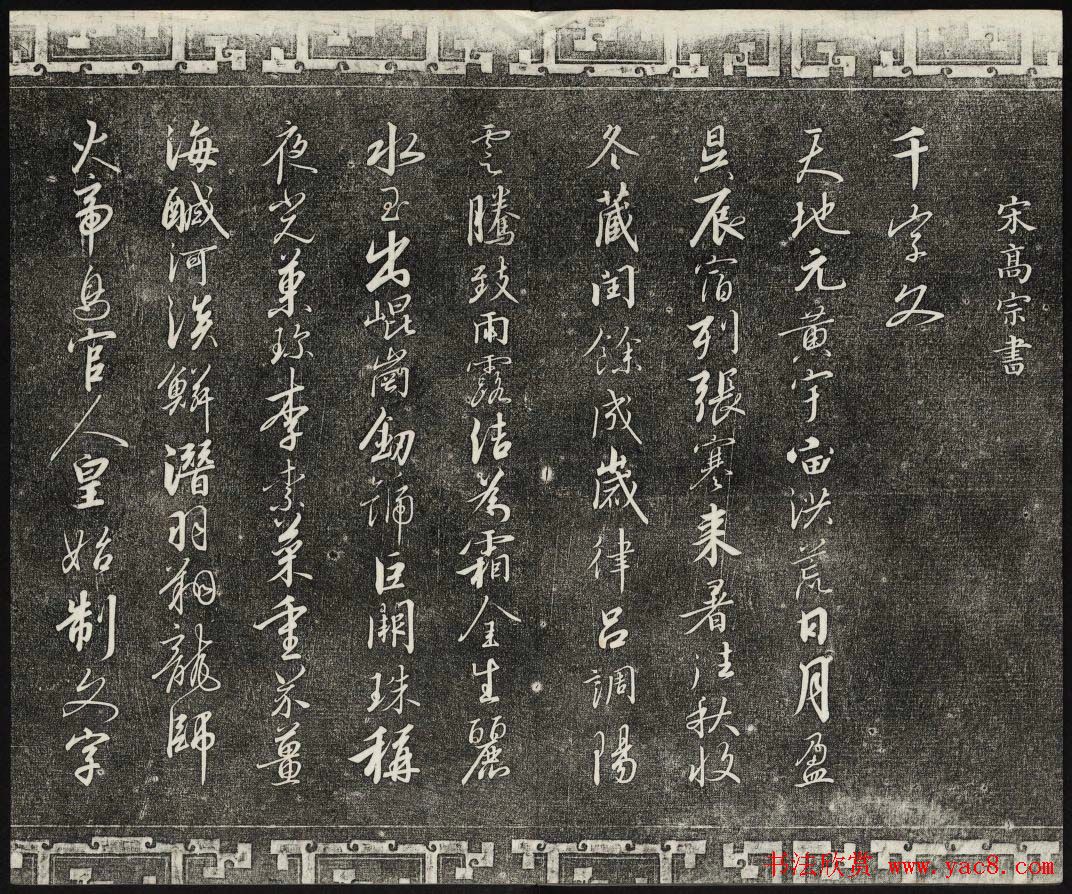 宋高宗書
千字文
天地元黃宇宙洪荒日月盈
昃辰宿列張寒来暑往秋收
冬藏閏餘成歲律呂調陽
雲騰致雨露結為霜金生麗
水玉出崐崗釼號巨闕珠稱
夜光菓珍李柰菜重芥薑
海醎河淡鱗潛羽翔龍師
火帝鳥官人皇始制文字
书法欣赏 www.yac8.com